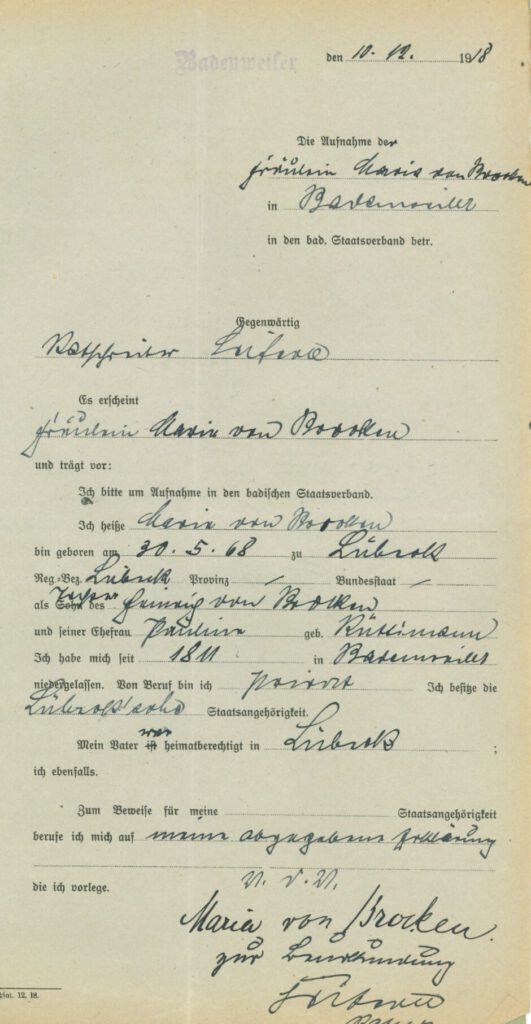 Badenweiler
den 10. 12. 1918
Die Aufnahme der
Fräulein Maria von Brocken
in Badenweiler
in den bad. Staatsverband betr.
Gegenwärtig
Ratschreiber
Es erscheint
Fräulein Maria von Brocken
und trägt vor:
Ich bitte um Aufnahme in den badischen Staatsverband.
Ich heiße Maria von Brocken
bin geboren am 30. 5. 68 zu Lübeck
Reg.-Bez. Lübeck Provinz — Bundesstaat —
als Tochter Sohn des Heinrich von Brocken
und seiner Ehefrau Pauline geb. Rüttimann
Ich habe mich seit 1811 in Badenweiler
niedergelassen. Von Beruf bin ich privat Ich besitze die
Staatsangehörigkeit.
Mein Vater war ist heimatberechtigt in Lübeck ;
ich ebenfalls.
Zum Beweise für meine Staatsangehörigkeit
berufe ich mich auf meine abgegebene Erklärung
die ich vorlege.
V. d. V.
Maria von Brocken.
zur Beurkundung
12. 18.